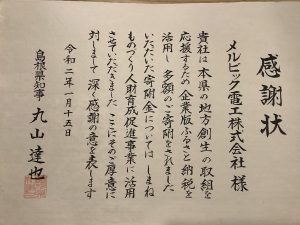 感謝状
メルビック電工株式会社 様
貴社は本県の地方創生の取組を
応援するため企業版ふるさと納税を
活用し多額のご寄附をされました
いただいた寄附金については しまね
ものづくり人財育成促進事業に活用
させていただきました ここにそのご厚意に
対しまして深く感謝の意を表します
令和二年一月十五日
島根県知事 丸山達也